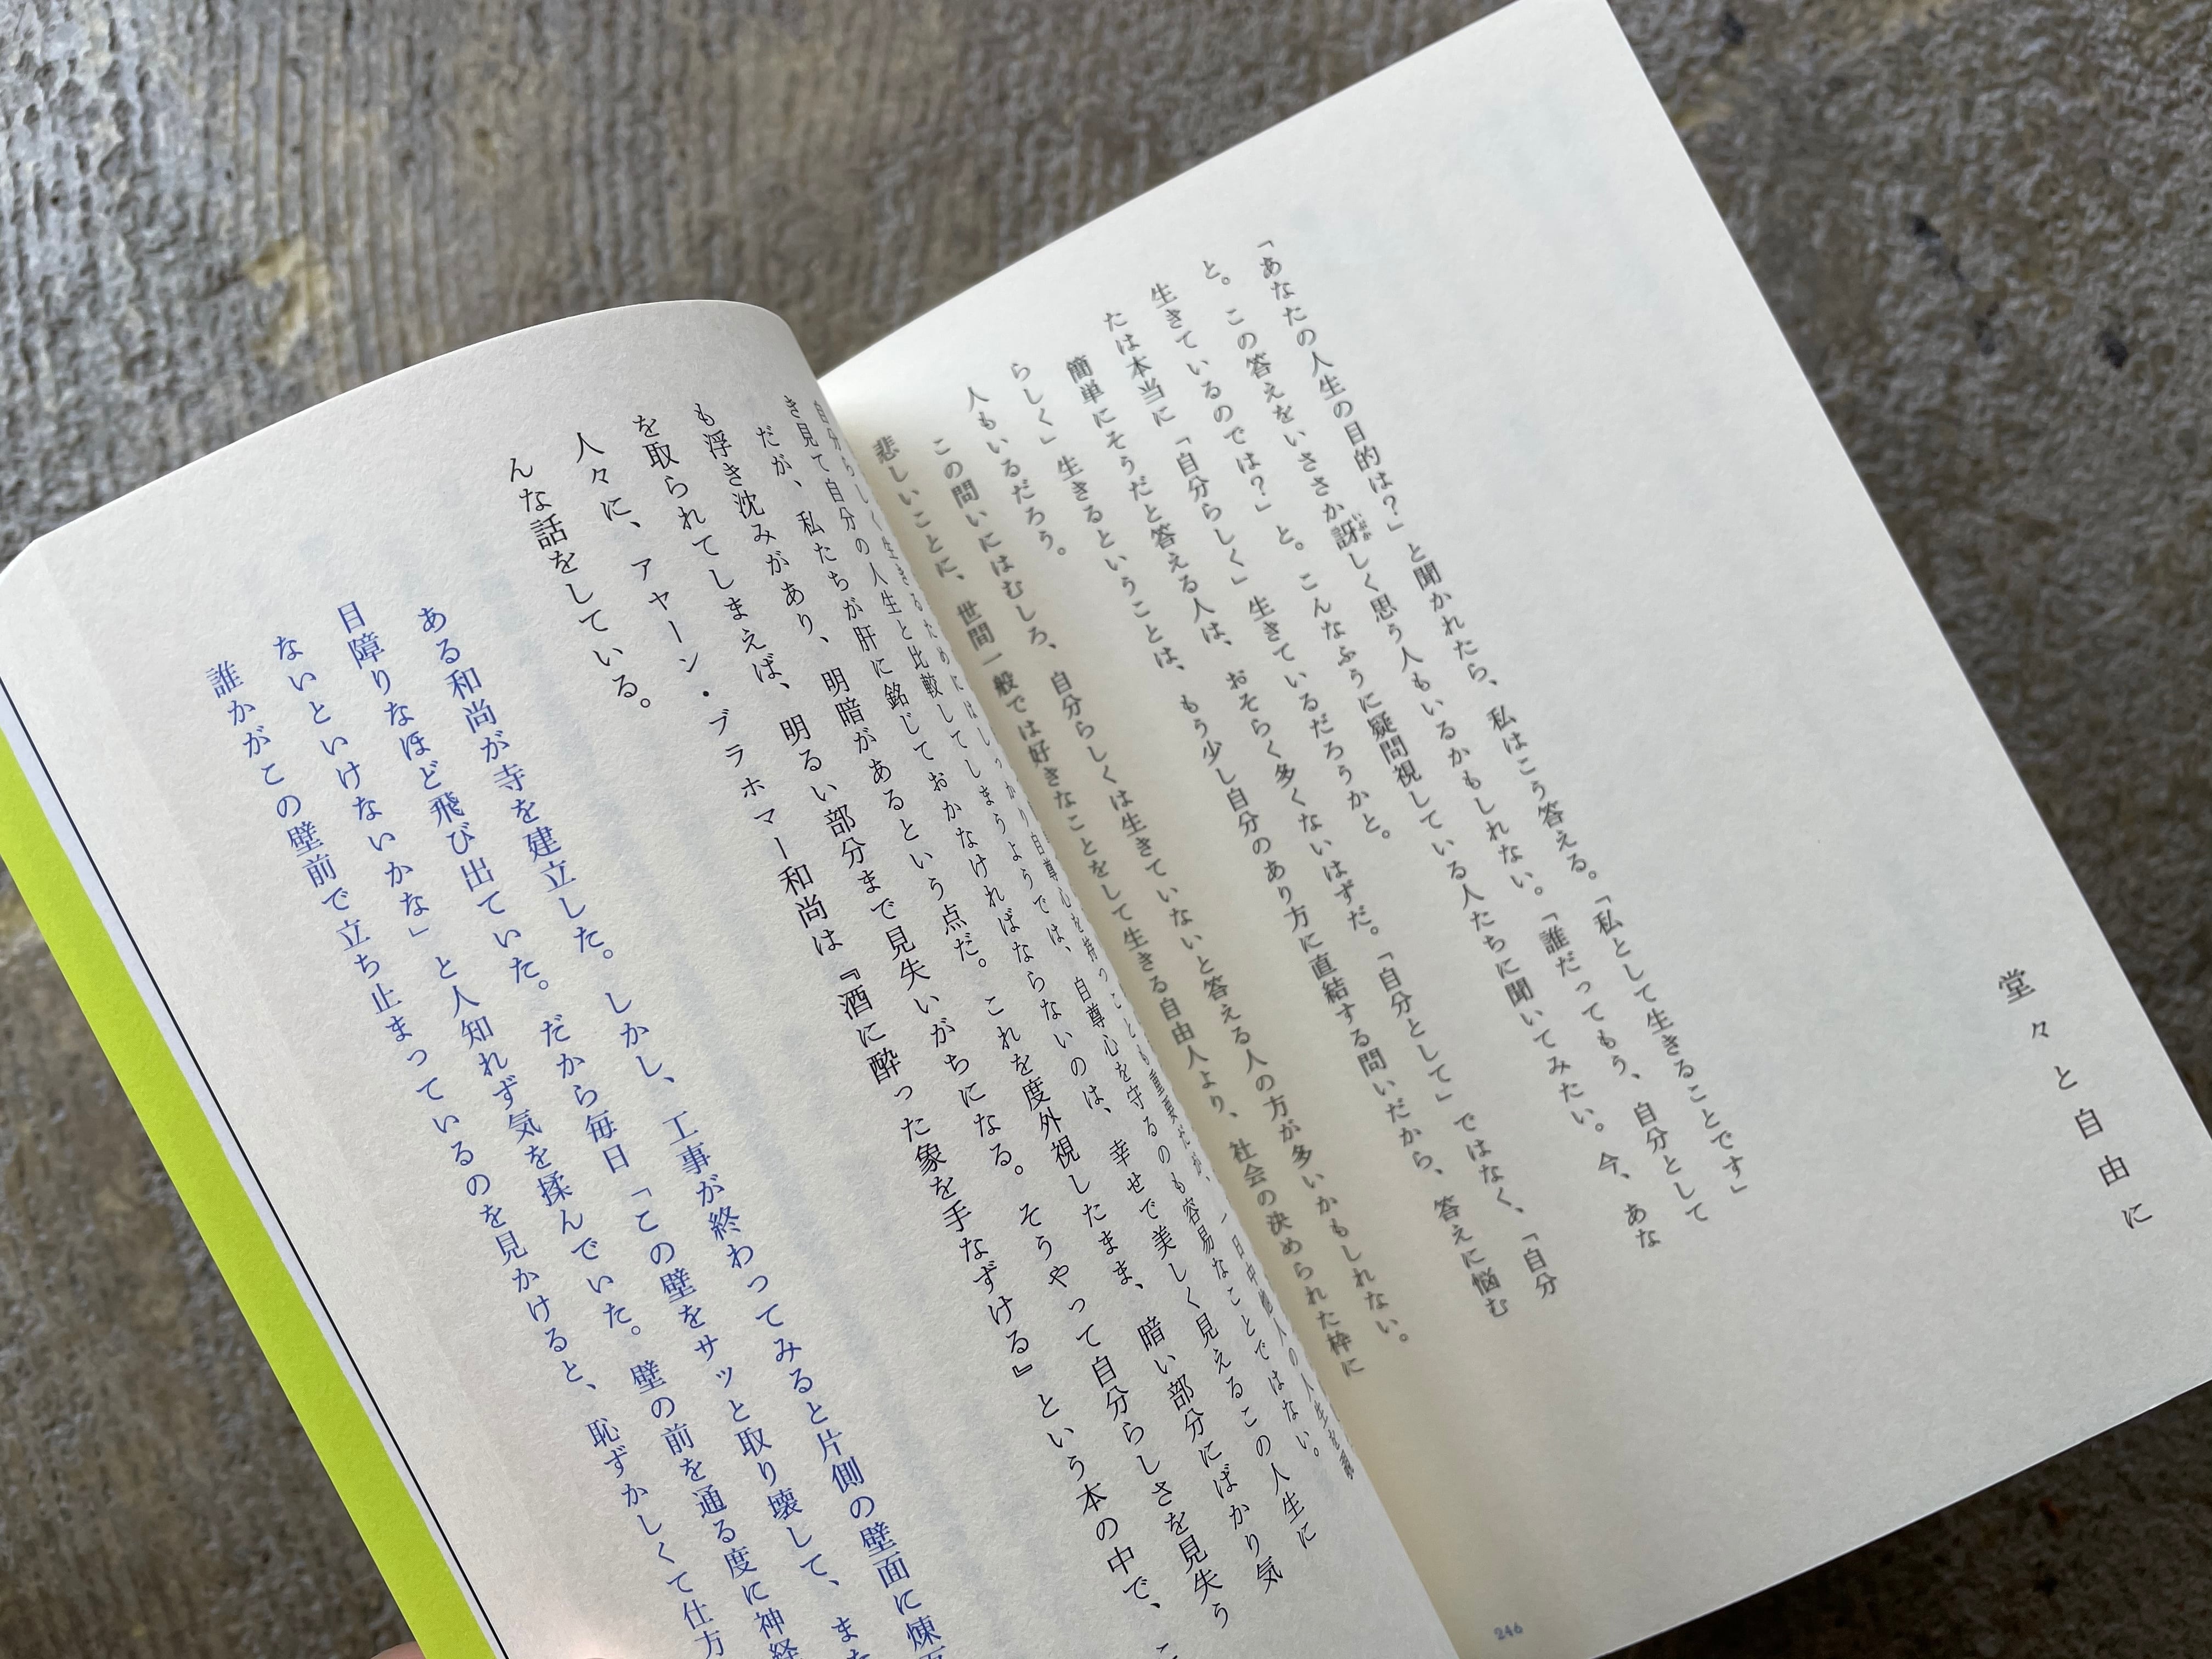 堂々と自由に
「あなたの人生の目的は?」と聞かれたら、私はこう答える。「私として生きることです」
と。この答えをいささか訝しく思う人もいるかもしれない。「誰だってもう、自分として
生きているのでは?」と。こんなふうに疑問視している人たちに聞いてみたい。今、あな
たは本当に「自分らしく」生きているだろうかと。
簡単にそうだと答える人は、おそらく多くないはずだ。「自分として」ではなく、「自分
らしく」生きるということは、もう少し自分のあり方に直結する問いだから、答えに悩む
人もいるだろう。
この問いにはむしろ、自分らしくは生きていないと答える人の方が多いかもしれない。
悲しいことに、世間一般では好きなことをして生きる自由人より、社会の決められた枠に
246
自分らしく生きるためにはしっかり自尊心を持つことも重要だが、一日中他人の人生を
き見て自分の人生と比較してしまうようでは、自尊心を守るのも容易なことではない。
だが、私たちが肝に銘じておかなければならないのは、幸せで美しく見えるこの人生に
も浮き沈みがあり、明暗があるという点だ。これを度外視したまま、暗い部分にばかり気
を取られてしまえば、明るい部分まで見失いがちになる。そうやって自分らしさを見失う
人々に、アヤーン・ブラホマー和尚は『酒に酔った象を手なずける』という本の中で、こ
んな話をしている。
ある和尚が寺を建立した。しかし、工事が終わってみると片側の壁面に煉瓦
目障りなほど飛び出ていた。だから毎日「この壁をサッと取り壊して、また
ないといけないかな」と人知れず気を揉んでいた。壁の前を通る度に神経
誰かがこの壁前で立ち止まっているのを見かけると、恥ずかしくて仕方